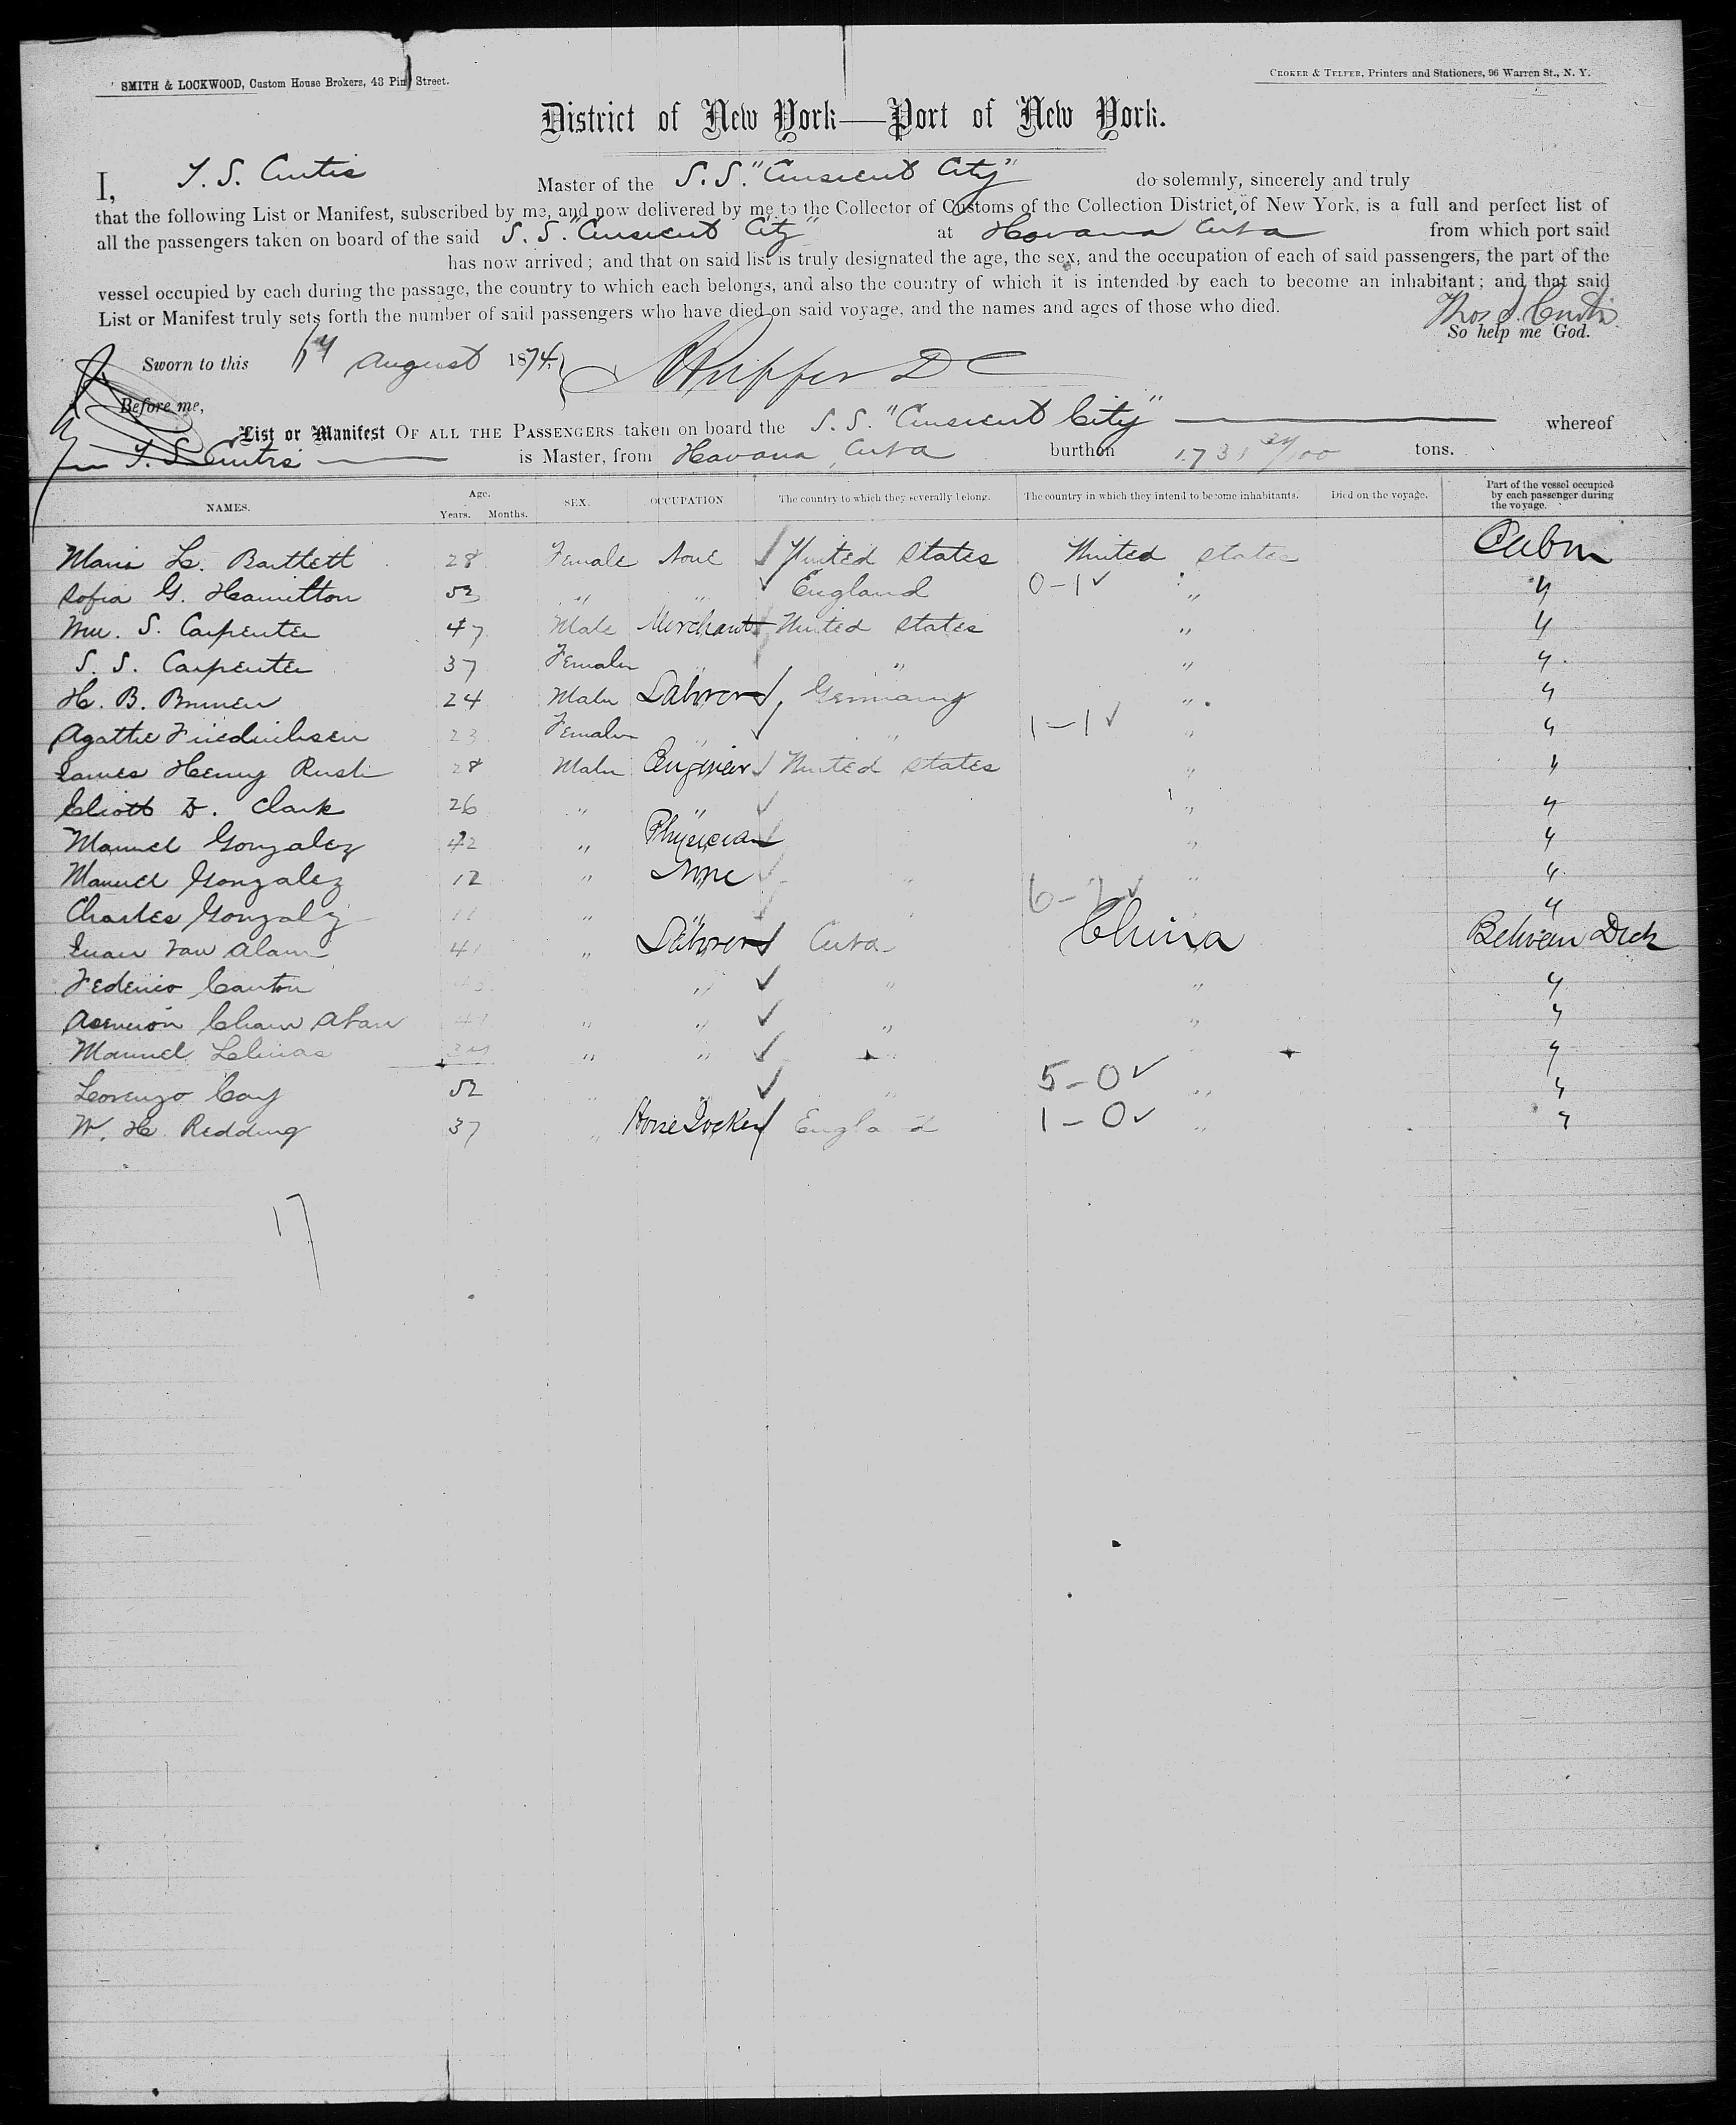 SMITH & LOCKWOOD, Custom House Brokers, 43 Pine Street.
CROKER & TELFER, Printers and Stationers, 96 Warren St., N. Y.
District of New York—Port of New York.
I, T. S. Curtis Master of the S.S. "Crescent City" do solemnly, sincerely and truly
that the following List or Manifest, subscribed by me, and now delivered by me to the Collector of Customs of the Collection District, of New York, is a full and perfect list of
all the passengers taken on board of the said S. S. "Crescent City" at Havana Cuba from which port said
has now arrived; and that on said list is truly designated the age, the sex, and the occupation of each of said passengers, the part of the
vessel occupied by each during the passage, the country to which each belongs, and also the country of which it is intended by each to become an inhabitant; and that said
List or Manifest truly sets forth the number of said passengers who have died on said voyage, and the names and ages of those who died.
Thos S. Curtis
So help me God.
Sworn to this August 1874.
Before me,
List or Manifest OF ALL THE PASSENGERS taken on board the S. S. "Crescent City" whereof
T. S. Curtis is Master, from Havana, Cuba burthen tons.
NAMES. Age. Years. Months. SEX. OCCUPATION The country to which they severally belong. The country in which they intend to become inhabitants. Died on the voyage. Part of the vessel occupied by each passenger during the voyage.
Maria L. Bartlett 28 Female None United States United States Cabin
Sofia G. Hamilton 53 " " England 0-1 " "
Wm. S. Carpenter 47 Male Merchant United States " "
S. S. Carpenter 37 Female " " " "
H. B. 24 Male Laborer Germany " "
Agathe Friedrichsen 23 Female " " 1-1 " "
James Henry Rush 28 Male Engineer United States " "
Eliott D. Clark 26 " " " "
Manuel Gonzalez 42 " Physician " "
Manuel Gonzalez 12 " None " " "
Charles Gonzalez 11 " " " 6-2 "
Juan 41 " Laborer Cuba China Between Deck
Federico Canton " " " "
Chaw " " " " "
Manuel " " " "
Lorenzo Cay 52 " " " 5-0 " "
W. H. Redding 37 " Horse Jockey England 1-0 " "
17